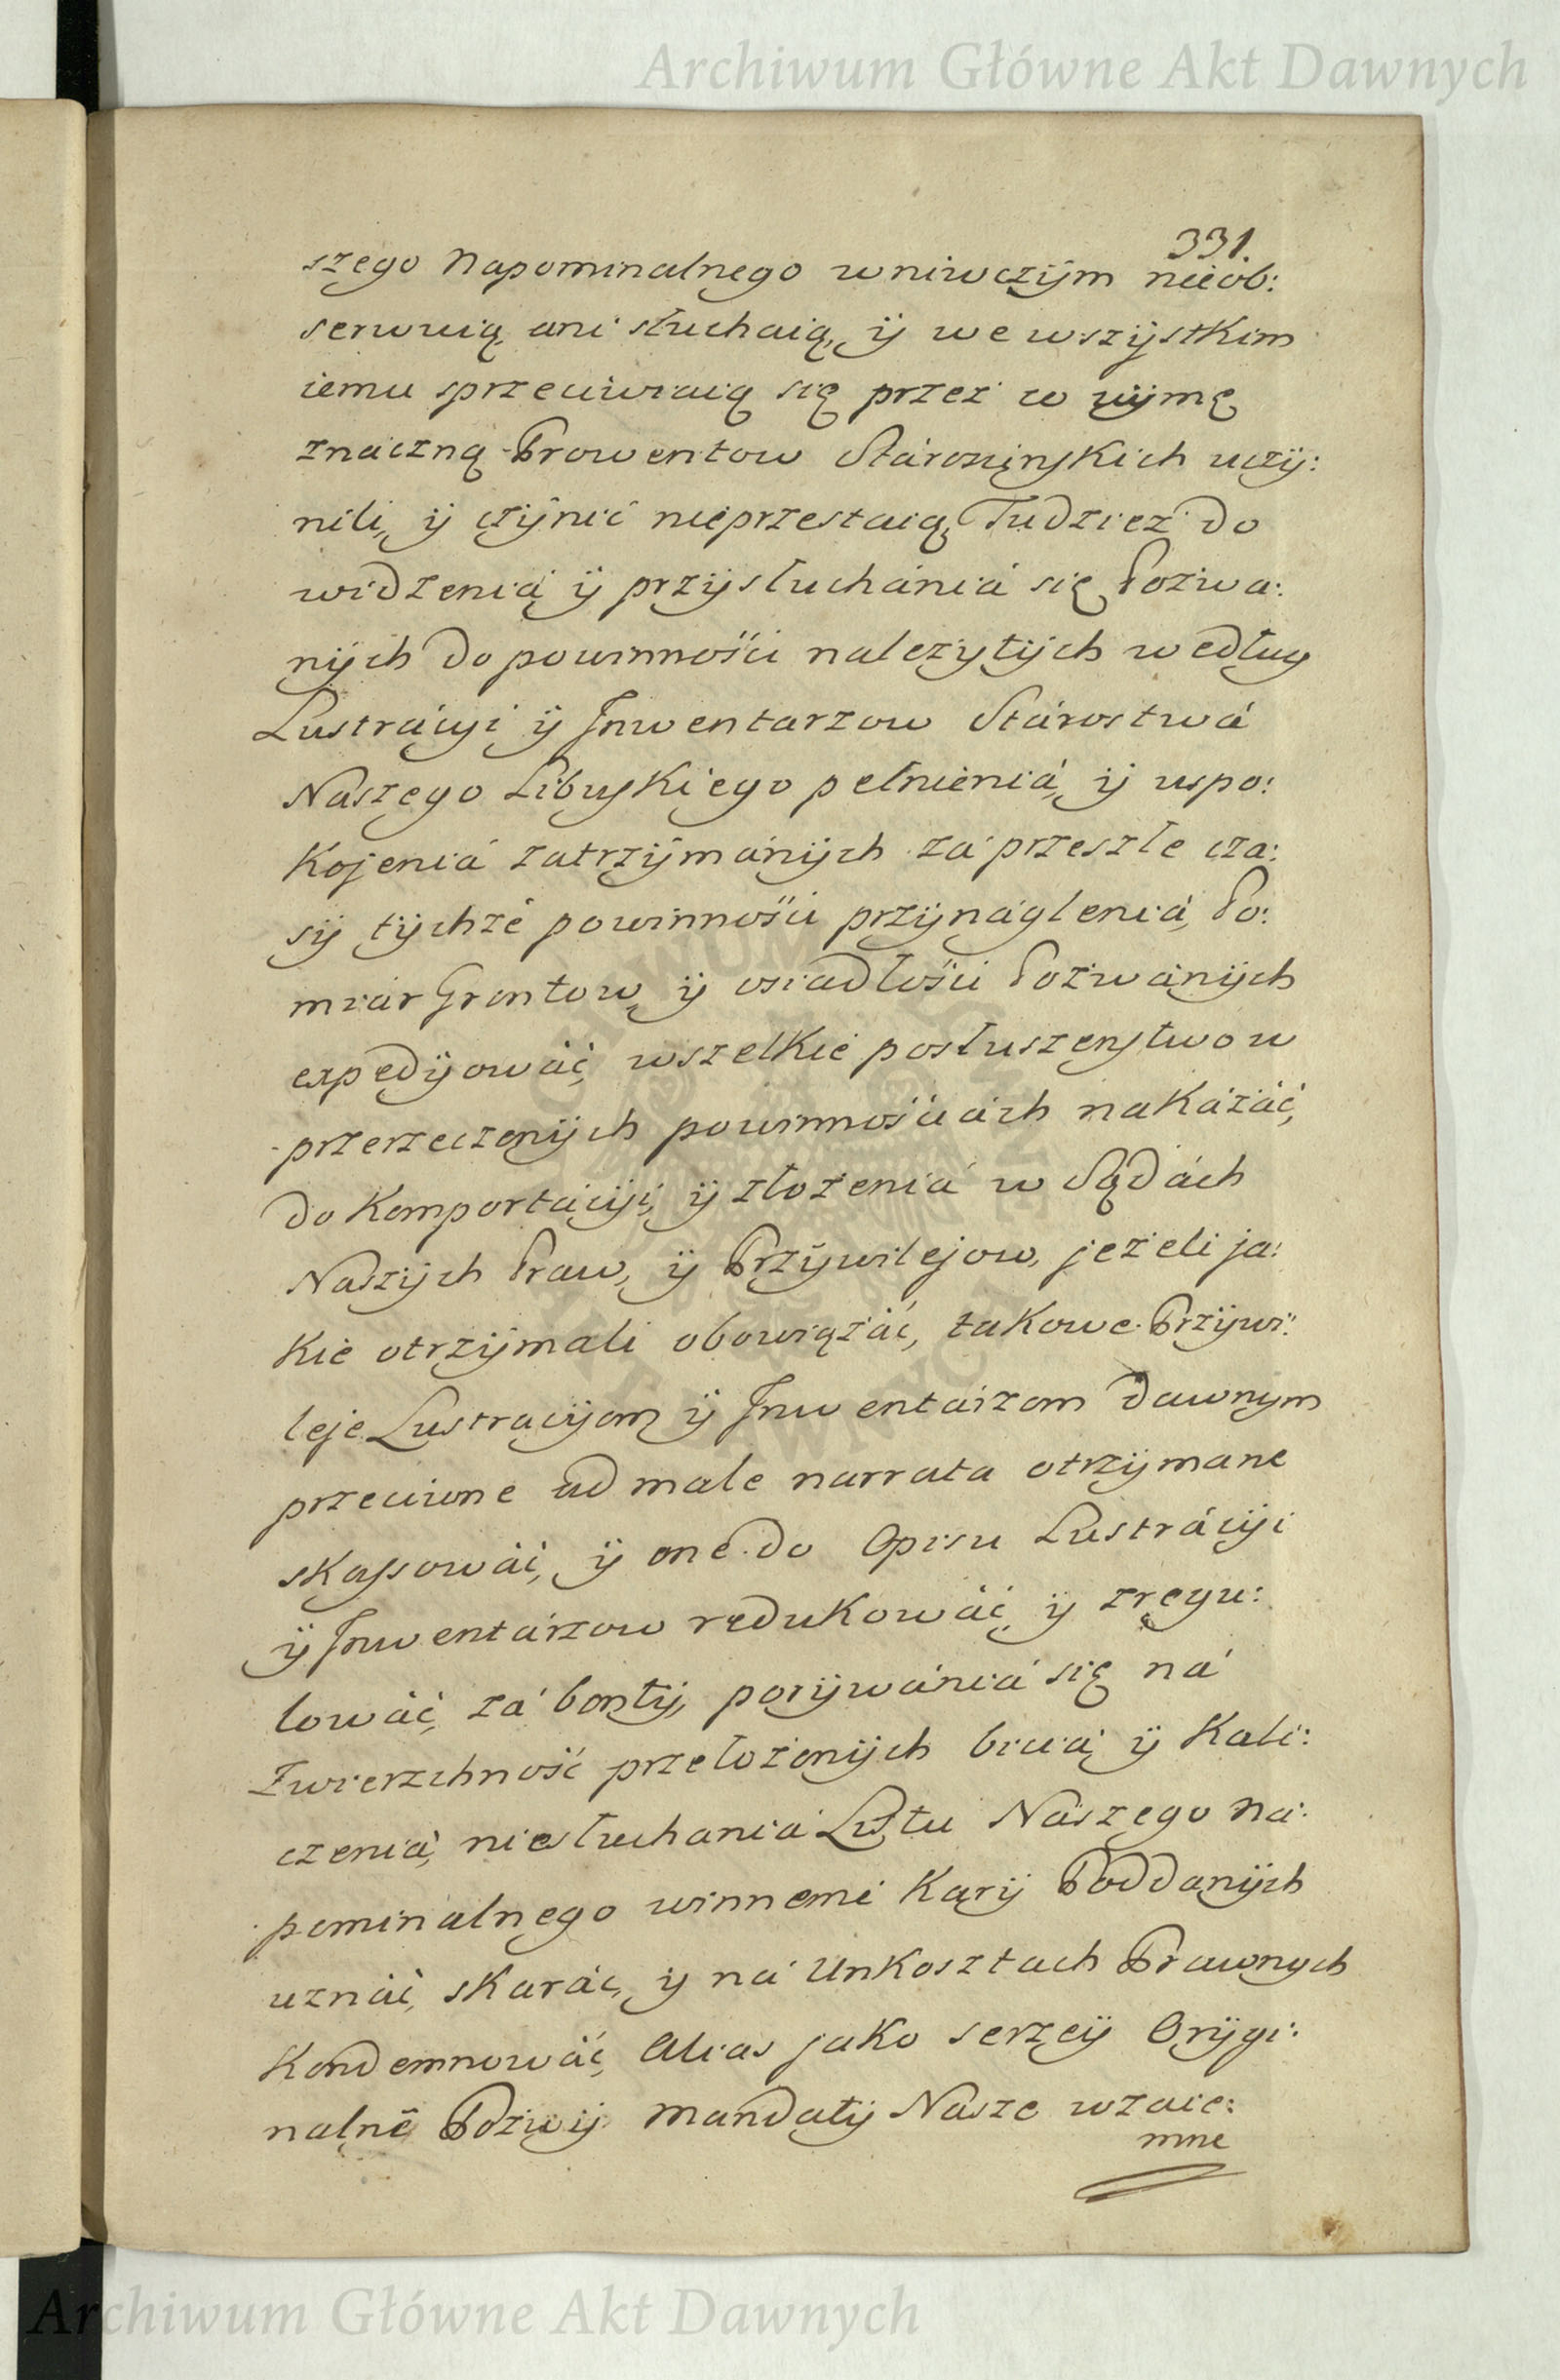 Archiwum Główne Akt Dawnych
331.
szego Napominalnego wniwczÿm nieob:
serwuią, ani słuchaią, ÿ we wszÿstkim
iemu sprzeciwiaią się przez co uÿmę
znaczną Prowentow Stárosciṅskich uczÿ:
nili, ÿ czÿnić nieprzestaią, Tudziez do
widzeniá ÿ przÿsłuchániá się Pozwa:
nÿch do powinnosci nalezytÿch według
Lustrácyi ÿ Inwentarzow Stárostwá
Naszego Libuskiego pełnieniá, ÿ uspo:
Kojeniá zatrzÿmánÿch zá przeszłe cza:
sÿ tÿchże powinności przÿnágleniá, Po:
miar Grontow, ÿ osiadłości Pozwánÿch
expedÿowáć, wszelkie posłuszenstwo w
przerzeczonÿch powinnościách nakázáć,
do Komportácÿi, ÿ złozeniá w Sądách
Naszÿch Praw, ÿ Przÿwilejow, jezeli ja:
Kie otrzÿmali obowiązáć, takowe Przÿwi:
leje Lustracÿom ÿ Inwentarzom dawnym
przeciwne ad male narrata otrzÿmane
skassowáć, ÿ one do Opisu Lustrácÿi
ÿ Inwentárzow redukowáć, ÿ zregu:
lowáć, zá bontÿ, porÿwániá się ná
Zwierzchność przełozonÿch biciá, ÿ Kali:
czeniá, niesłuchaniá Listu Nászego Na:
pominalnego winnemi Karÿ Poddanÿch
uznáć, skaráć, ÿ ná Unkosztach Prawnych
Kondemnowáć, Alias jako szerzeÿ Orÿgi:
nalne Pozwÿ Mandatÿ Nasze wzaie:
mne
Archiwum Główne Akt Dawnych